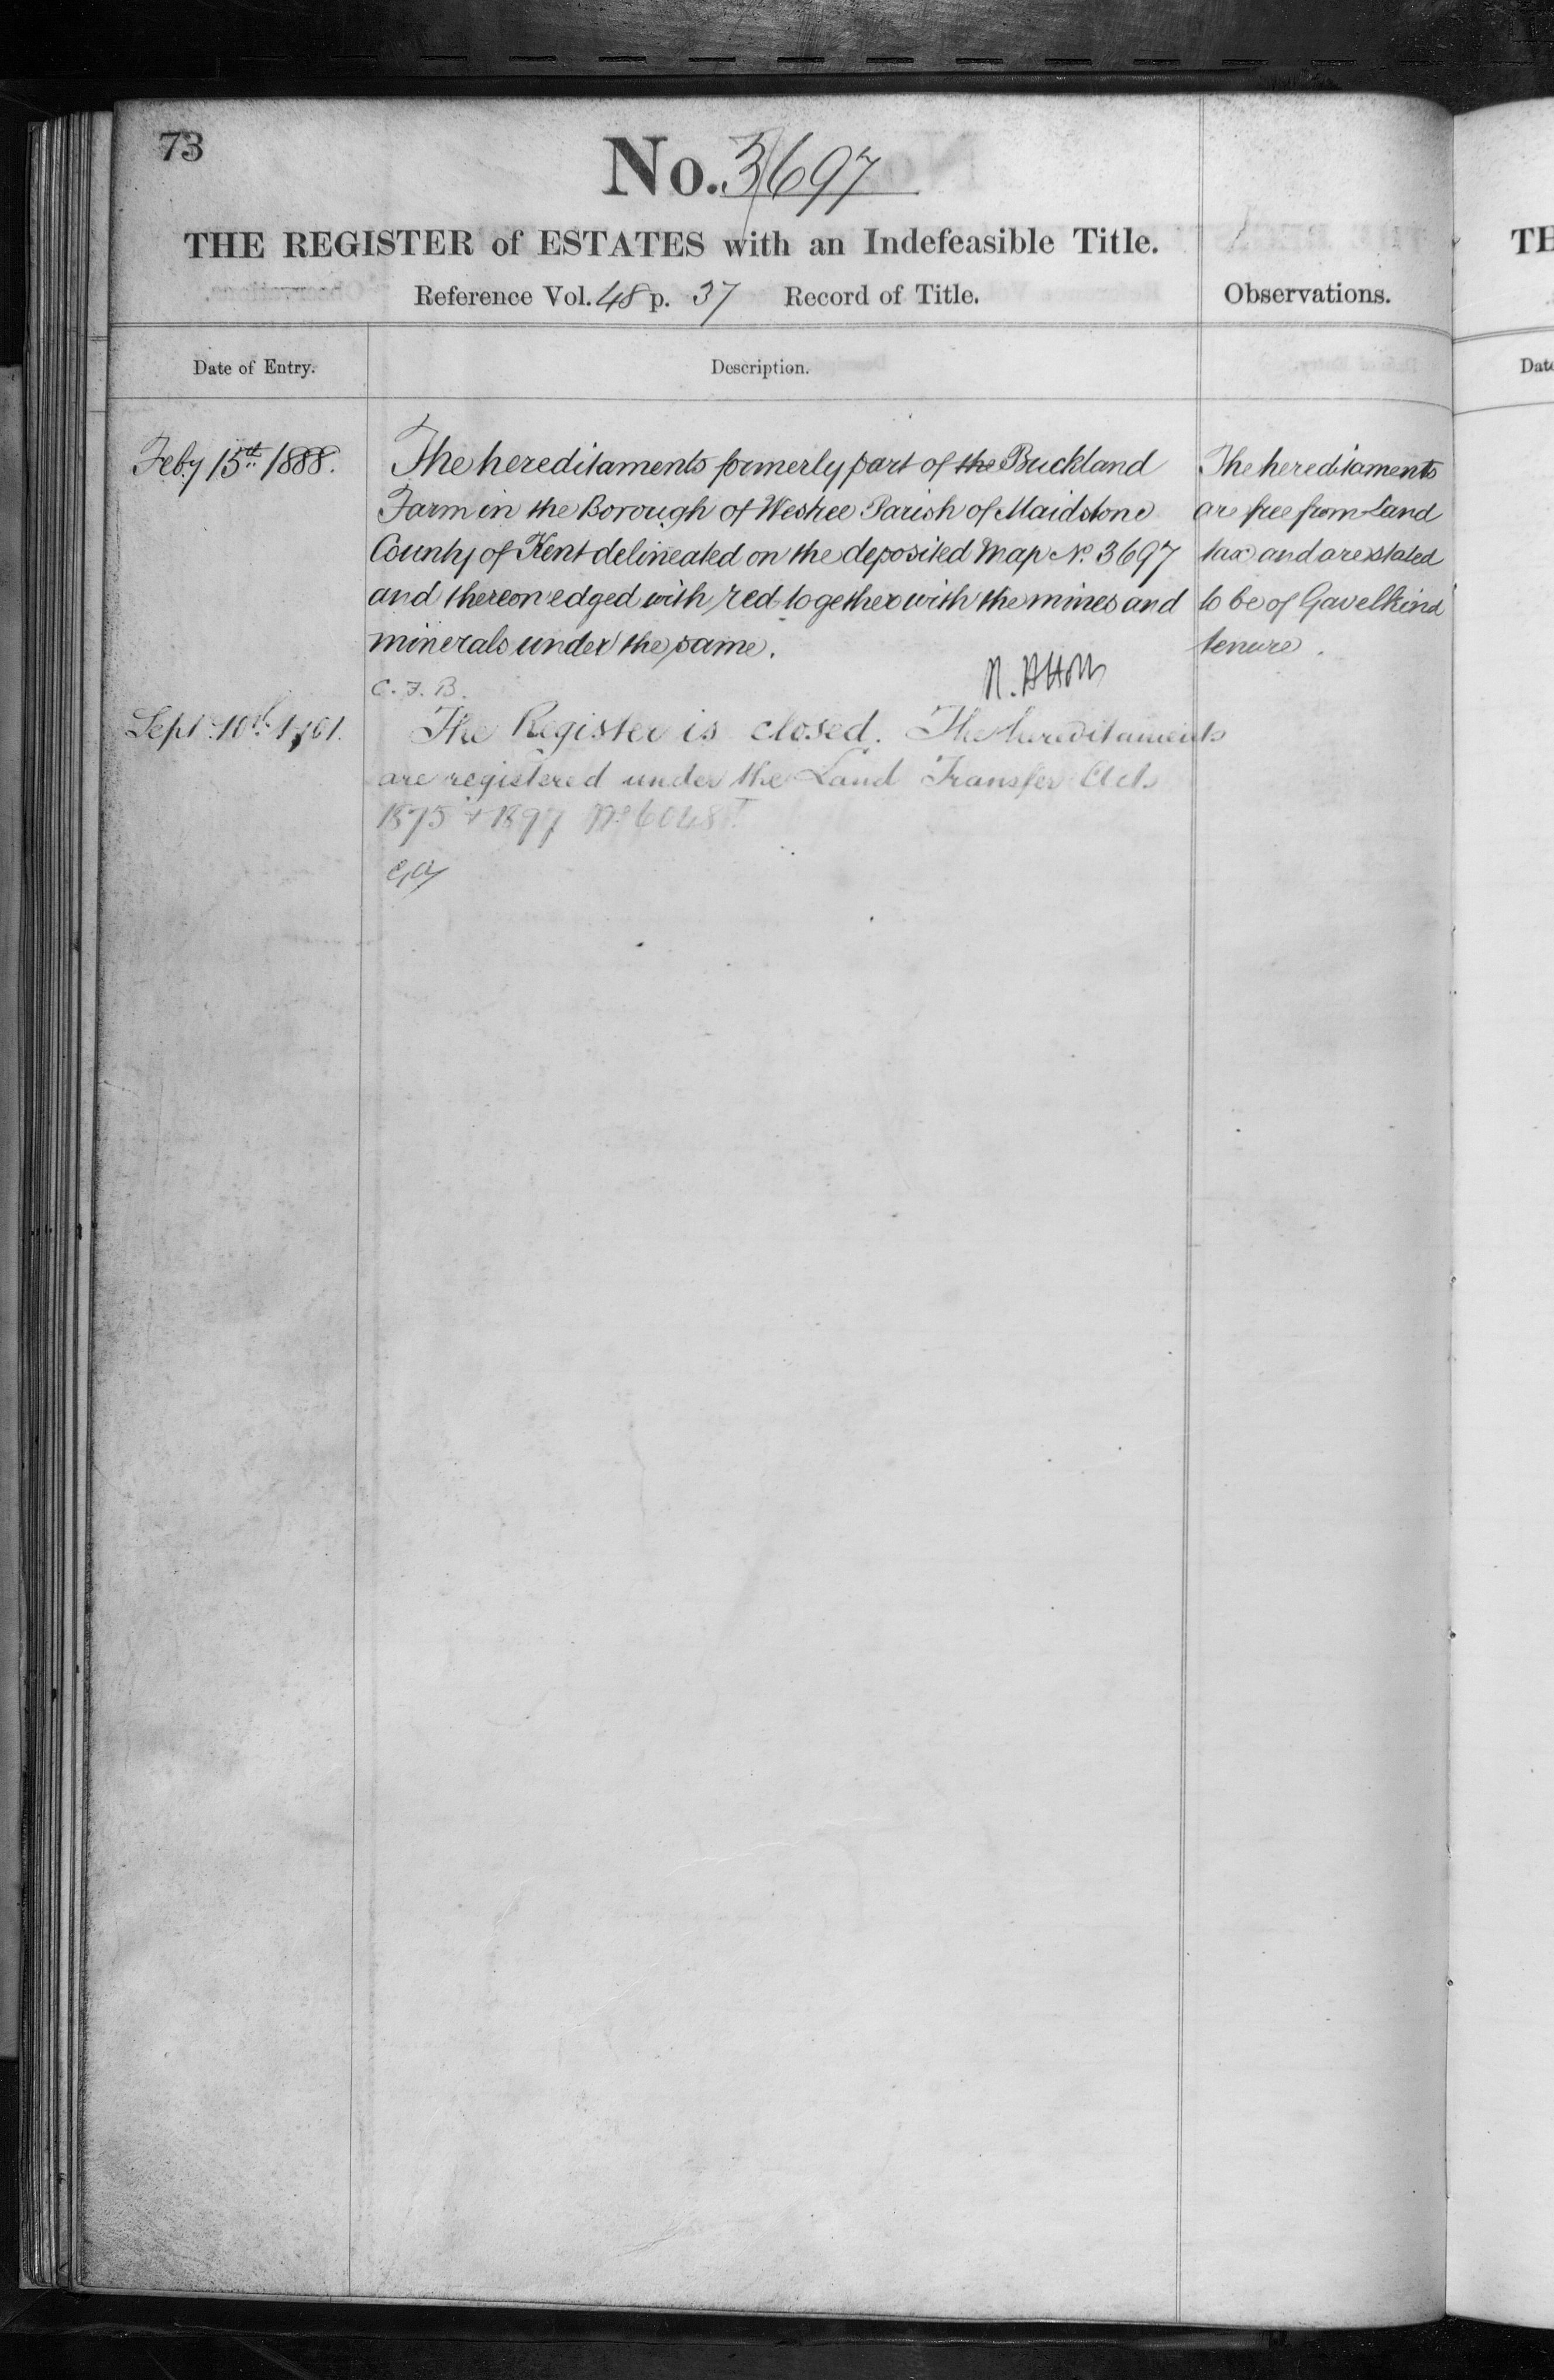 73
No. 3697
THE REGISTER of ESTATES with an Indefeasible Title.
Reference Vol. 48 p. 37 Record of Title.
Observations.
Date of Entry.
Description.
Feby 15th 1888.
The hereditaments formerly part of the Buckland
Farm in the Borough of Westree Parish of Maidstone
County of Kent delineated on the deposited Map No. 3697
and thereon edged with red together with the mines and
minerals under the same.
The hereditaments
are free from Land
tax and are stated
to be of Gavelkind
tenure.
C. F. B.
Sept. 10th 1901.
The Register is closed. The hereditaments
are registered under the Land Transfer Acts
1875 & 1897 No. 6048
TH
Date